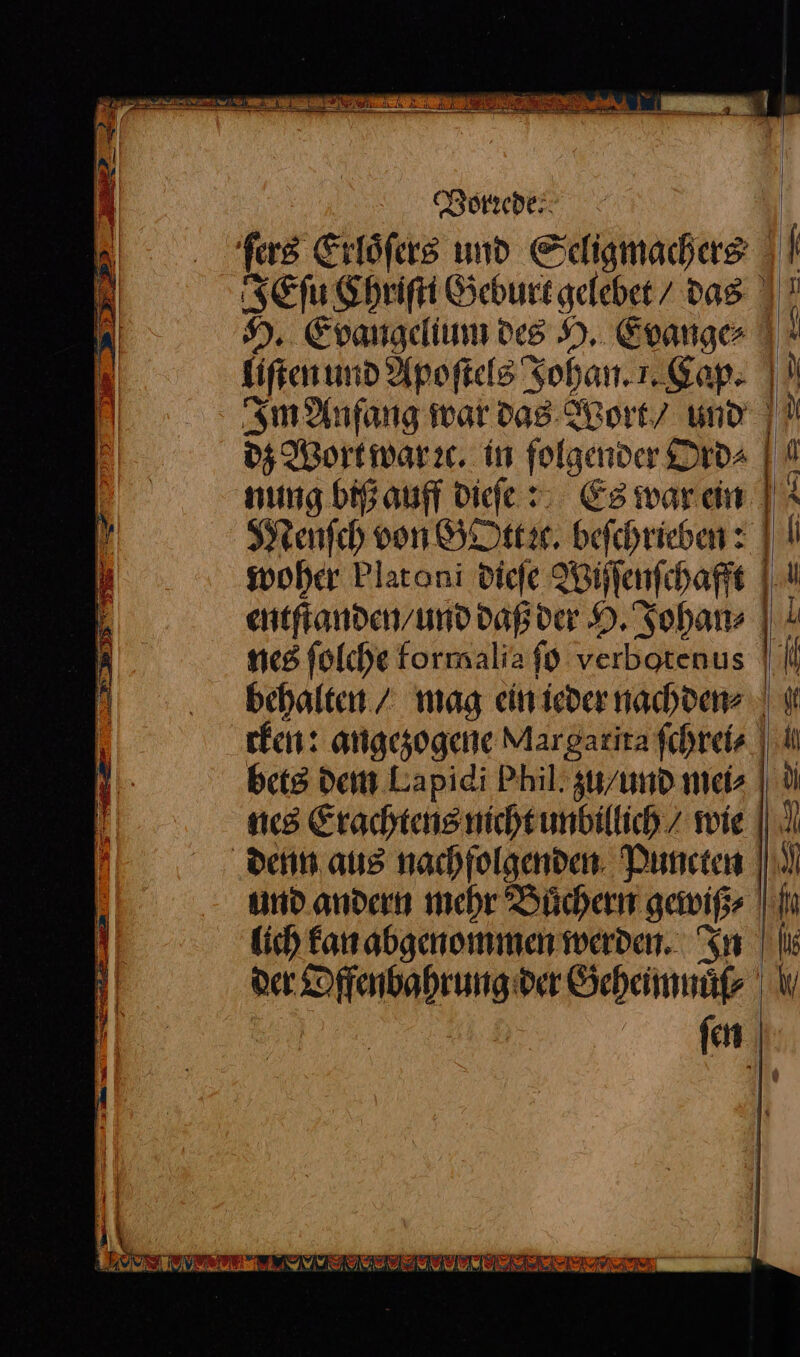 Vorrede.
ſers Erlöſers und Seligmachers
JEſu Chriſti Geburt gelebet / das
H. Evangelium des H. Evange⸗
liſten und Apoſtels Johan. 1. Cap.
Im Anfang war das Wort / und
dz Wort war ꝛc. in folgender Ord⸗
nung biß auff dieſe : Es war ein
Menſch von GOtt ꝛc. beſchrieben :
woher Platoni dieſe Wiſſenſchafft
entſtanden / und daß der H. Johan⸗
nes ſolche formalia ſo verbotenus
behalten / mag ein ieder nachden⸗
cken : angezogene Margarita ſchrei⸗
bets dem Lapidi Phil. zu / und mei⸗
nes Erachtens nicht unbillich / wie
denn aus nachfolgenden Puncten
und andern mehr Büchern gewiß⸗
lich kan abgenommen werden. In
der Offenbahrung der Geheimnüſ⸗
ſen